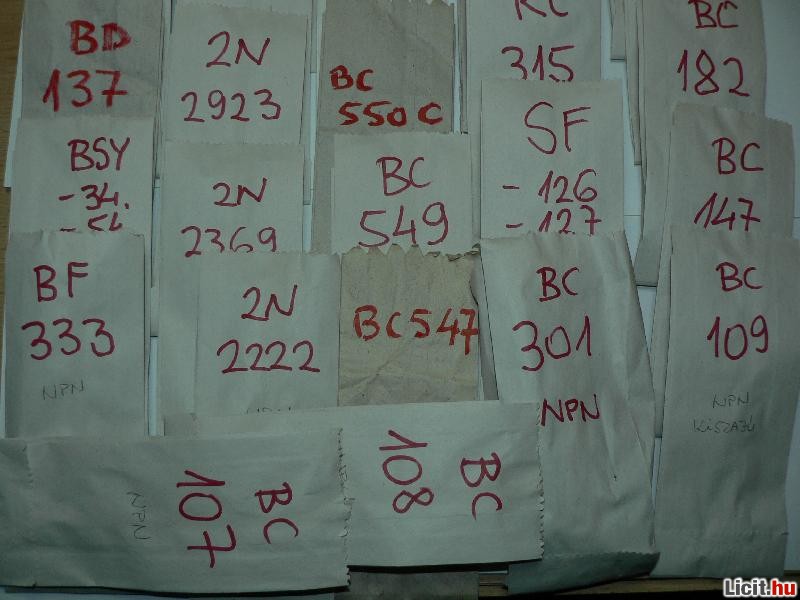 BD
137
2N
2923
BC
550C
KC
315
BC
182
BSY
-34.
-54
2N
2369
BC
549
SF
-126
-127
BC
147
BF
333
NPN
2N
2222
NPN
BC547
BC
301
NPN
BC
109
NPN
BC
107
NPN
BC
108
Licit.hu